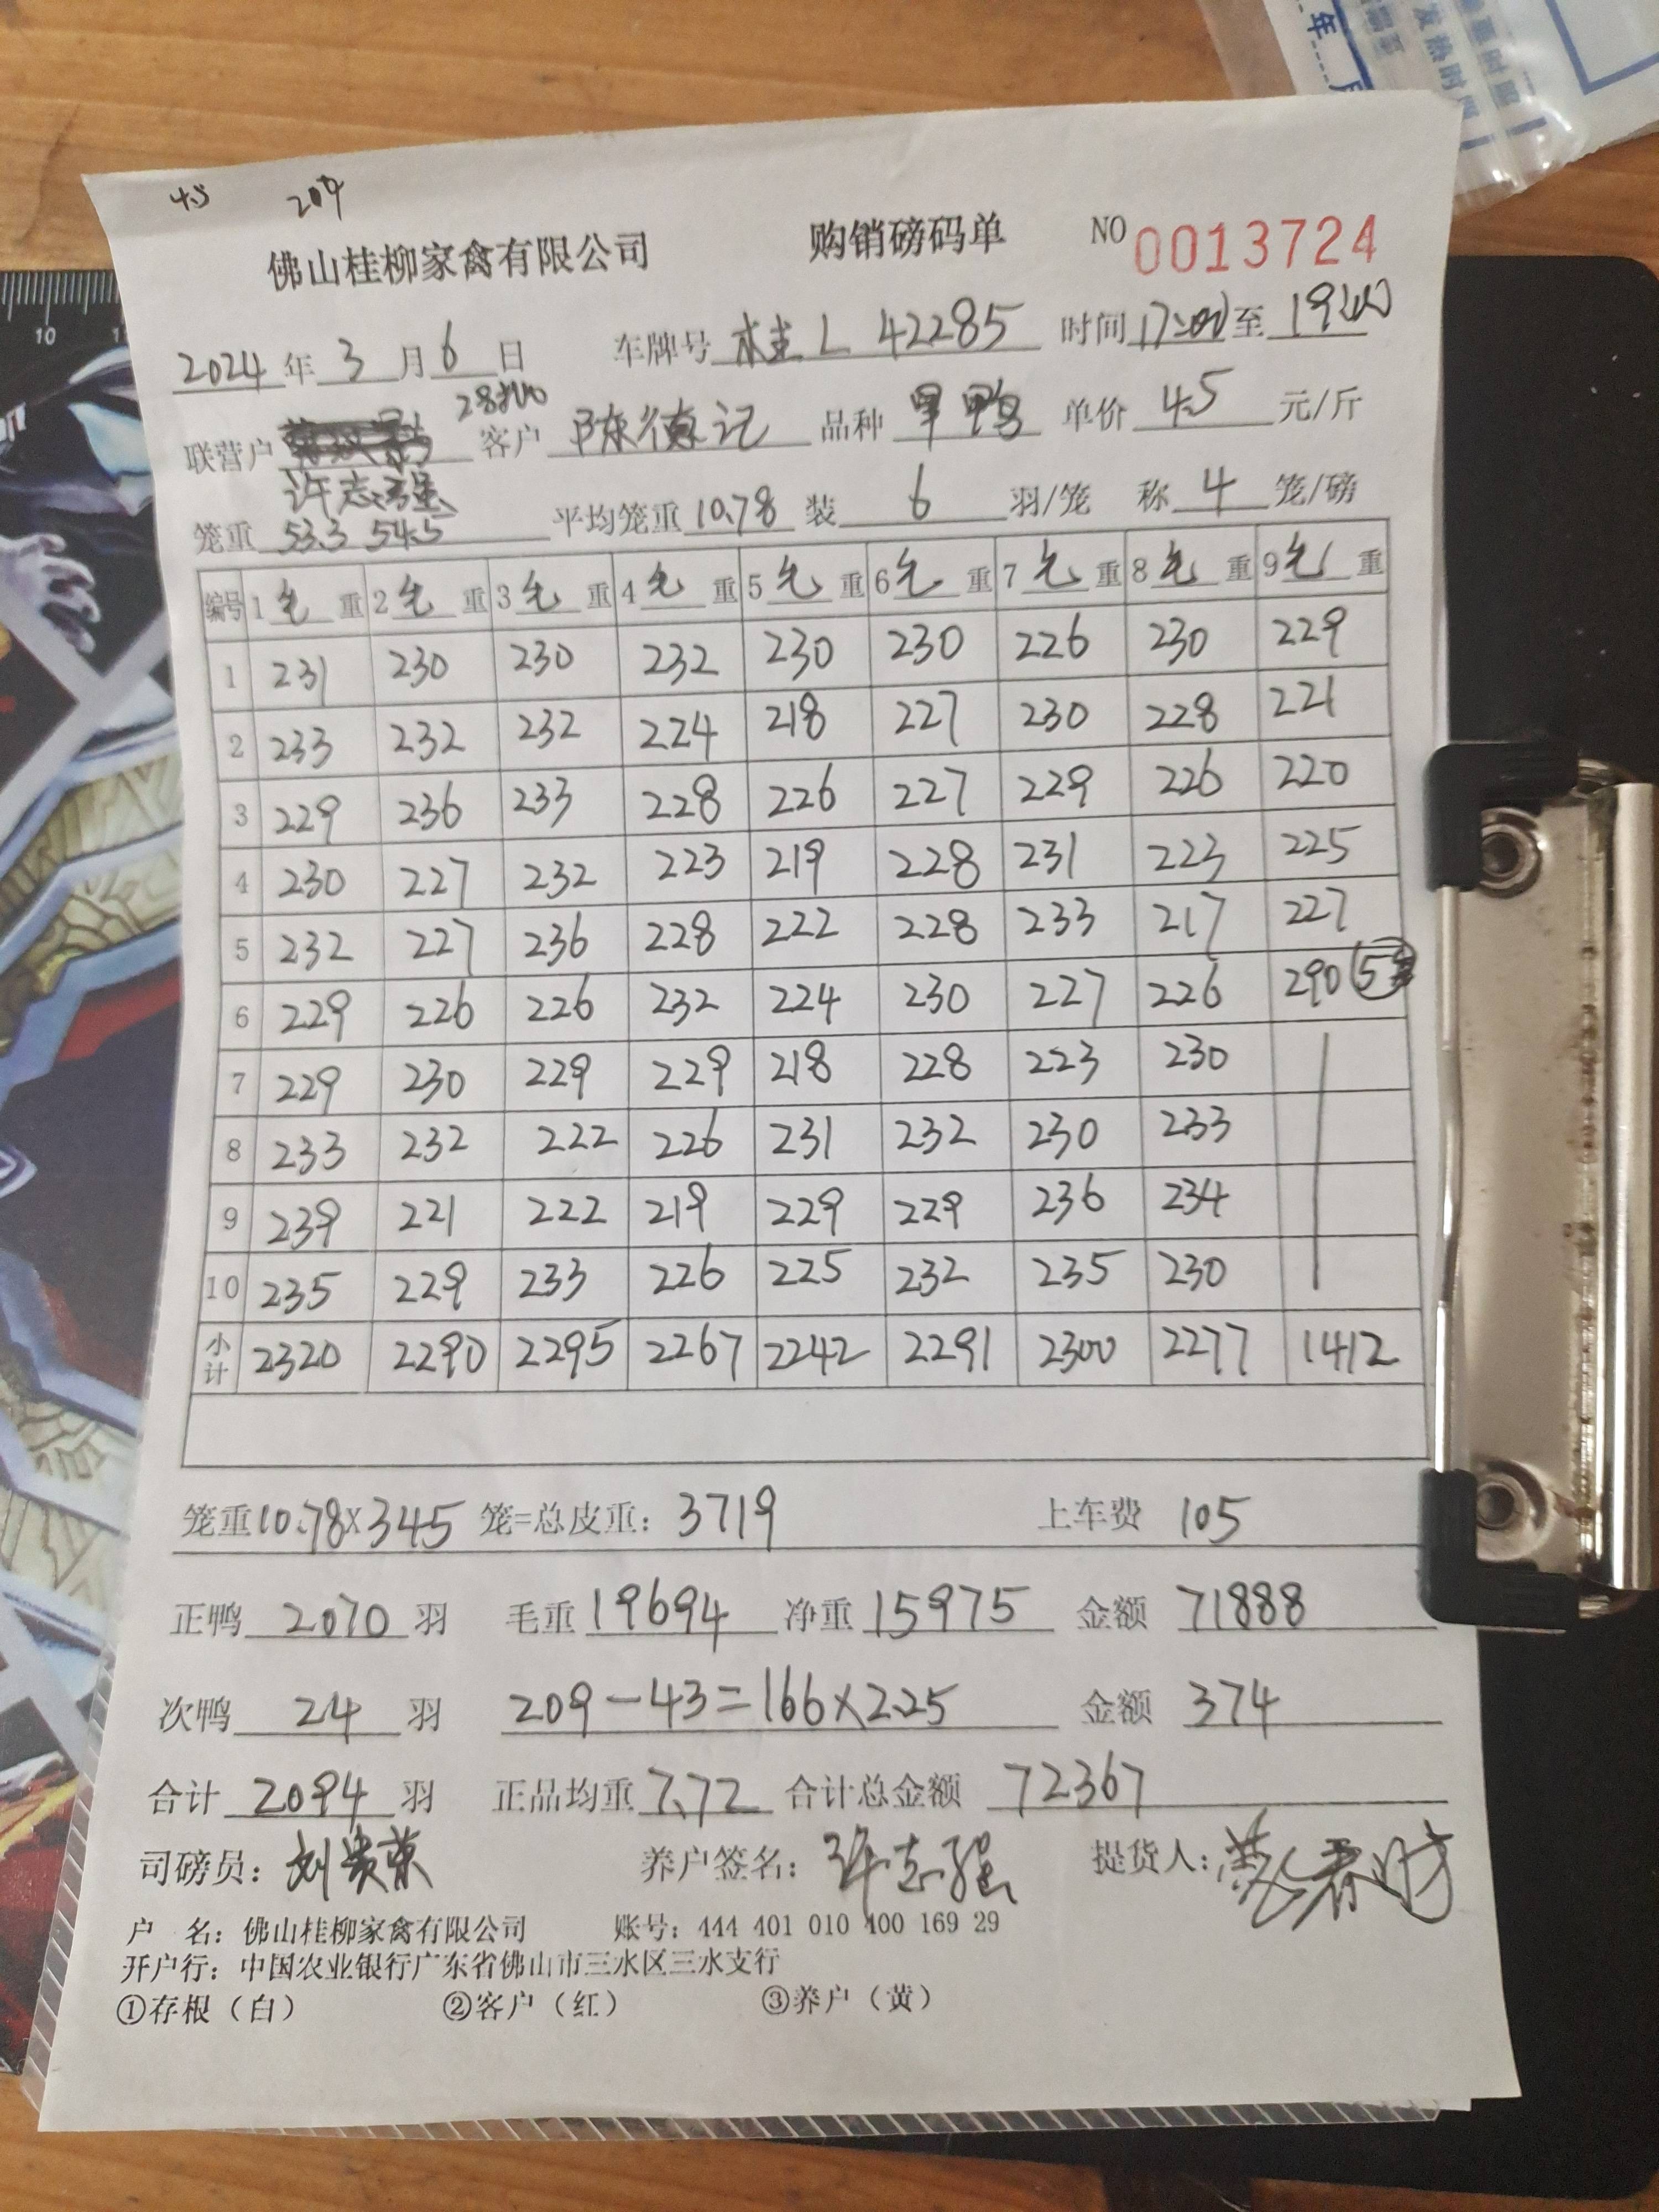 4.5 209
佛山桂柳家禽有限公司 购销磅码单 NO 0013724
2024 年 3 月 6 日 车牌号 桂L 42285 时间 17:00 至 19:00
联营户 客户 陈德记 品种 单价 4.5 元/斤
许志强
笼重 53.3 54.5 平均笼重 10.78 装 6 羽/笼 称 4 笼/磅
编号 1毛重 2毛重 3毛重 4毛重 5毛重 6毛重 7毛重 8毛重 9毛重
1 231 230 230 232 230 230 226 230 229
2 233 232 232 224 218 227 230 228 221
3 229 236 233 228 226 227 229 226 220
4 230 227 232 223 219 228 231 223 225
5 232 227 236 228 222 228 233 217 227
6 229 226 226 232 224 230 227 226 290 5
7 229 230 229 229 218 228 223 230
8 233 232 222 226 231 232 230 233
9 239 221 222 219 229 229 236 234
10 235 229 233 226 225 232 235 230
小计 2320 2290 2295 2267 2242 2291 2300 2277 1412
笼重 10.78×345 笼=总皮重: 3719 上车费 105
正鸭 2070 羽 毛重 19694 净重 15975 金额 71888
次鸭 24 羽 209-43=166×2.25 金额 374
合计 2094 羽 正品均重 7.72 合计总金额 72367
司磅员: 刘贵荣 养户签名: 许志强 提货人:
户 名: 佛山桂柳家禽有限公司 账号: 444 401 010 400 169 29
开户行: 中国农业银行广东省佛山市三水区三水支行
①存根(白) ②客户(红) ③养户(黄)